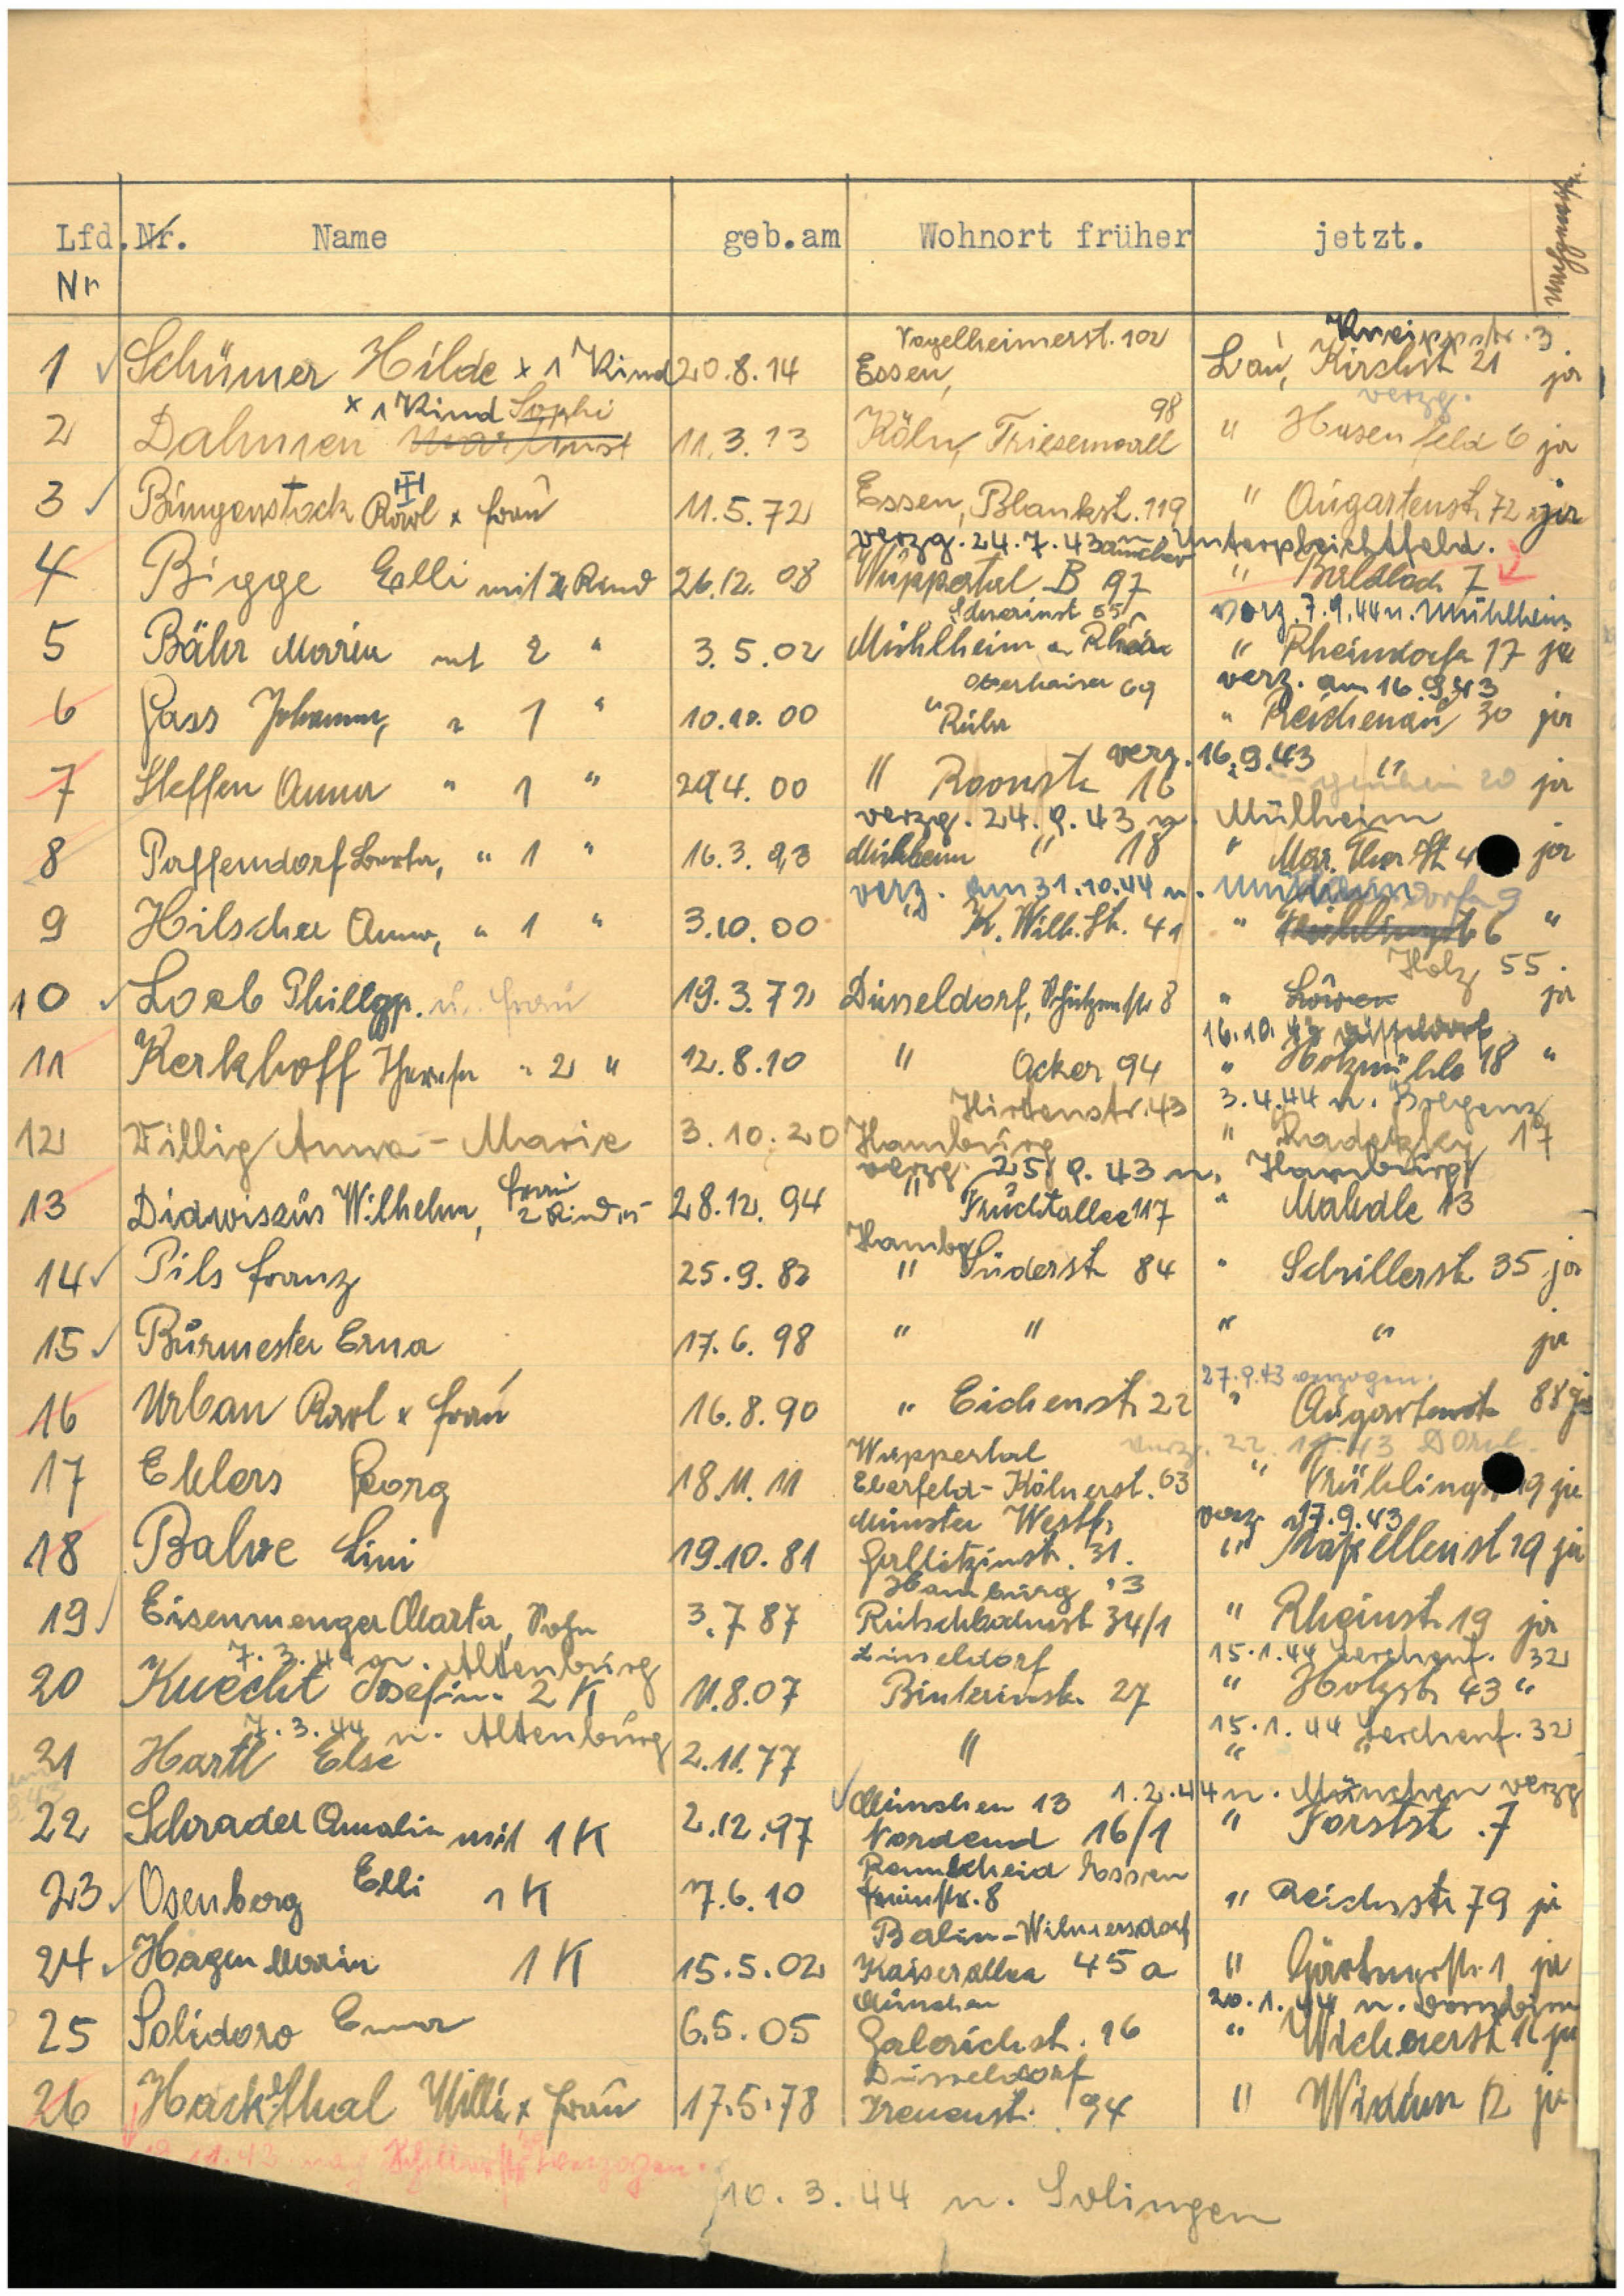 Lfd. Nr. Name geb.am Wohnort früher jetzt.
Nr
Vogelheimerst. 102 Kneippstr. 3
1 Schümer Hilde x 1 Kind 20.8.14 Essen, Lau, Kirchst 21 ja
x 1 Kind Sophi 98 verzg.
2 Dahmen 11.3.13 Köln, Friesenwall " Hasenfeld 6 ja
3 Büngenstock Karl x Frau 11.5.72 Essen, Blankst. 119 " Augartenst. 72 ja
verzg. 24.7.43 n. Unterpleichtfeld.
4 Bigge Elli mit 2 Kind 26.12.08 Wuppertal B 97 " 7
55 verz. 7.9.44 n. Mühlheim
5 Bähr Maria mit 2 " 3.5.02 Mühlheim a. " Rheindorfa 17 ja
69 verz. am 16.9.43
6 Gass Johanna, " 1 " 10.10.00 " Ruhr " Reichenau 30 ja
verz. 16.9.43
7 Steffen Anna " 1 " 29.4.00 " Roonst 16 " 20 ja
verzg. 24.9.43 n. Mülheim
8 Paffendorf Berta, " 1 " 16.3.93 Mühlheim " 18 " Mar. Ther. St 4 ja
verz. am 31.10.44 n.
9 Hilscher Anna, " 1 " 3.10.00 " K. Wilh. St. 41 " 6 "
Holz 55.
10 Loeb Phillipp. u. Frau 19.3.72 Düsseldorf, Schützenstr 8 " Löwen ja
16.10.43 Düsseldorf
11 Kerkhoff Therese " 2 " 12.8.10 " Acker 94 " Holzmühle 18 "
Hirtenstr. 43 3.4.44 n. Bregenz
12 Willig Anna - Marie 3.10.20 Hamburg " Radetzky 17
verzg. 25.9.43 n. Hamburg
13 Didwiszus Wilhelm, Frau 2 Kinder 28.12.94 " Fruchtallee 117 " Mahdle 13
Hambg
14 Pils Franz 25.9.82 " Süderst 84 " Schillerst. 35 ja
15 Burmester Erna 17.6.98 " " " " ja
27.9.43 verzogen.
16 Urban Karl x Frau 16.8.90 " Eichenst. 22 " Augartenst 88 ja
Wuppertal verzg. 22.11.43
17 Ehlers Georg 18.11.11 Elberfeld - Kölnerst. 63 " Frühlingst 19 ja
Münster Westf. verz. 17.9.43
18 Balve Lini 19.10.81 Gallitzinst. 31. " Kapellenst 19 ja
Hamburg 13
19 Eisenmenger Marta, Sohn 3.7.87 Rutschbahnst 34/1 " Rheinst. 19 ja
7.3.44 n. Altenburg Düsseldorf 15.1.44 Lerchenf. 32
20 Knecht Josefine 2 K 11.8.07 Binterimst. 27 " Holzst. 43 "
7.3.44 n. Altenburg 15.1.44 Lerchenf. 32
21 Hartl Else 2.11.77 " " "
München 13 1.2.44 n. München verzg
22 Schrader Amalie mit 1 K 2.12.97 Nordend 16/1 " Forstst. 7
Remscheid
23 Osenberg Elli 1 K 7.6.10 8 " Reichsstr 79 ja
Berlin - Wilmersdorf
24 Hagen Maria 1 K 15.5.02 Kaiserallee 45 a " Gärtnerstr. 1 ja
München 20.1.44 n. Dornbirn
25 Solidoro Emma 6.5.05 Galerichst. 16 " Wichnerst. ja
Düsseldorf
26 Hackethal Willi x Frau 17.5.78 Irenenst. 94 " Widum 12 ja
11.43 verzogen.
10.3.44 n. Solingen